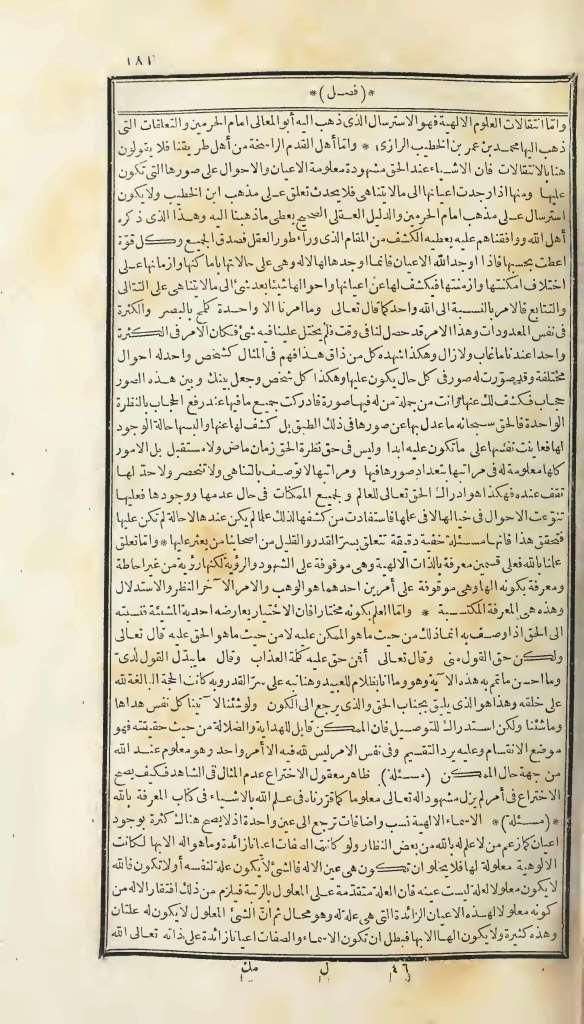 ١٨١
*( فصل )*
وأما انتقالات العلوم الالهية فهو الاسترسال الذى ذهب اليه أبو المعالى امام الحرمين والتعلقات التى
ذهب اليها محمد بن عمر بن الخطيب الرازى * وأما أهل القدم الراسخة من أهل طريقنا فلا يقولون
هنا بالانتقالات فان الاشياء عند الحق مشهودة معلومة الاعيان والاحوال على صورها التى تكون
عليها ومنها اذا وجدت اعيانها الى مالا يتناهى فلا يحدث تعلق على مذهب ابن الخطيب ولا يكون
استرسال على مذهب امام الحرمين والدليل العقلى الصحيح يعطى ماذهبنا اليه وهذا الذى ذكره
أهل الله ووافقناهم عليه يعطيه الكشف من المقام الذى وراء طور العقل فصدق الجميع وكل قوة
اعطت بحسبها فاذا أوجد الله الاعيان فانما أوجدها لها لاله وهى على حالاتها باماكنها وازمانها على
اختلاف امكنتها وازمنتها فيكشف لها عن اعيانها واحوالها شيئا بعد شئ الى مالا يتناهى على التتالى
والتتابع فالامر بالنسبة الى الله واحد كما قال تعالى وما امرنا الا واحدة كلمح بالبصر والكثرة
فى نفس المعدودات وهذا الامر قد حصل لنا فى وقت فلم يختل علينا فيه شئ فكان الامر فى الكثرة
واحدا عندنا ما غاب ولا زال وهكذا شهده كل من ذاق هذا فهم فى المثال كشخص واحد له احوال
مختلفة وقد صورت له صور فى كل حال يكون عليها وهكذا كل شخص وجعل بينك وبين هذه الصور
حجاب فكشف لك عنها وانت من جملة من له فيها صورة فادركت جميع ما فيها عند رفع الحجاب بالنظرة
الواحدة فالحق سبحانه ما عدل بها عن صورها فى ذلك الطبق بل كشف لها عنها والبسها حالة الوجود
لها فعاينت نفسها على ما تكون عليه ابدا وليس فى حق نظرة الحق زمان ماض ولا مستقبل بل الامور
كلها معلومة له فى مراتبها بتعداد صورها فيها ومراتبها لا توصف بالتناهى ولا تنحصر ولا حد لها
تقف عنده فهكذا هو ادراك الحق تعالى للعالم ولجميع الممكنات فى حال عدمها ووجودها فعليها
تنوعت الاحوال فى خيالها لا فى علمها فاستفادت من كشفها لذلك علما لم يكن عندها لا حالة لم تكن عليها
فتحقق هذا فانها مسئلة خفية دقيقة تتعلق بسر القدر والقليل من اصحابنا من يعثر عليها * وأما تعلق
علمنا بالله فعلى قسمين معرفة بالذات الالهية وهى موقوفة على الشهود والرؤية لكنها رؤية من غير احاطة
ومعرفة بكونه الها وهى موقوفة على أمرين احدهما هو الوهب والامر الآخر النظر والاستدلال
وهذه هى المعرفة المكتسبة * وأما العلم بكونه مختارا فان الاختيار يعارضه احدية المشيئة فنسبته
الى الحق اذا وصف به انما ذلك من حيث ما هو الممكن عليه لا من حيث ما هو الحق عليه قال تعالى
ولكن حق القول منى وقال تعالى أفمن حق عليه كلمة العذاب وقال ما يبدل القول لدى
وما احسن ما تمم به هذه الآية وهو وما انا بظلام للعبيد وهنا نبه على سر القدر وبه كانت الحجة البالغة لله
على خلقه وهذا هو الذى يليق بجناب الحق والذى يرجع الى الكون ولو شئنا لآتينا كل نفس هداها
وما شئنا ولكن استدراك للتوصيل فان الممكن قابل للهداية والضلالة من حيث حقيقته فهو
موضع الانقسام وعليه يرد التقسيم وفى نفس الامر ليس لله فيه الا أمر واحد وهو معلوم عند الله
من جهة حال الممكن (مسئلة) ظاهر معقول الاختراع عدم المثال فى الشاهد فكيف يصح
الاختراع فى أمر لم يزل مشهودا له تعالى معلوما كما قررناه فى علم الله بالاشياء فى كتاب المعرفة بالله
*(مسئلة)* الاسماء الالهية نسب واضافات ترجع الى عين واحدة اذ لا يصح هناك كثرة بوجود
اعيان كما زعم من لا علم له بالله من بعض النظار ولو كانت الصفات اعيانا زائدة وما هو اله الا بها لكانت
الالوهية معلولة لها فلا يخلو ان تكون هى عين الاله فالشئ لا يكون علة لنفسه أو لا تكون فالله
لا يكون معلولا لعلة ليست عينه فان العلة متقدمة على المعلول بالرتبة فيلزم من ذلك افتقار الاله من
كونه معلولا لهذه الاعيان الزائدة التى هى علة له وهو محال ثم ان الشئ المعلول لا يكون له علتان
وهذه كثيرة ولا يكون الها الا بها فبطل ان تكون الاسماء والصفات اعيانا زائدة على ذاته تعالى الله
٤٦ ل مك